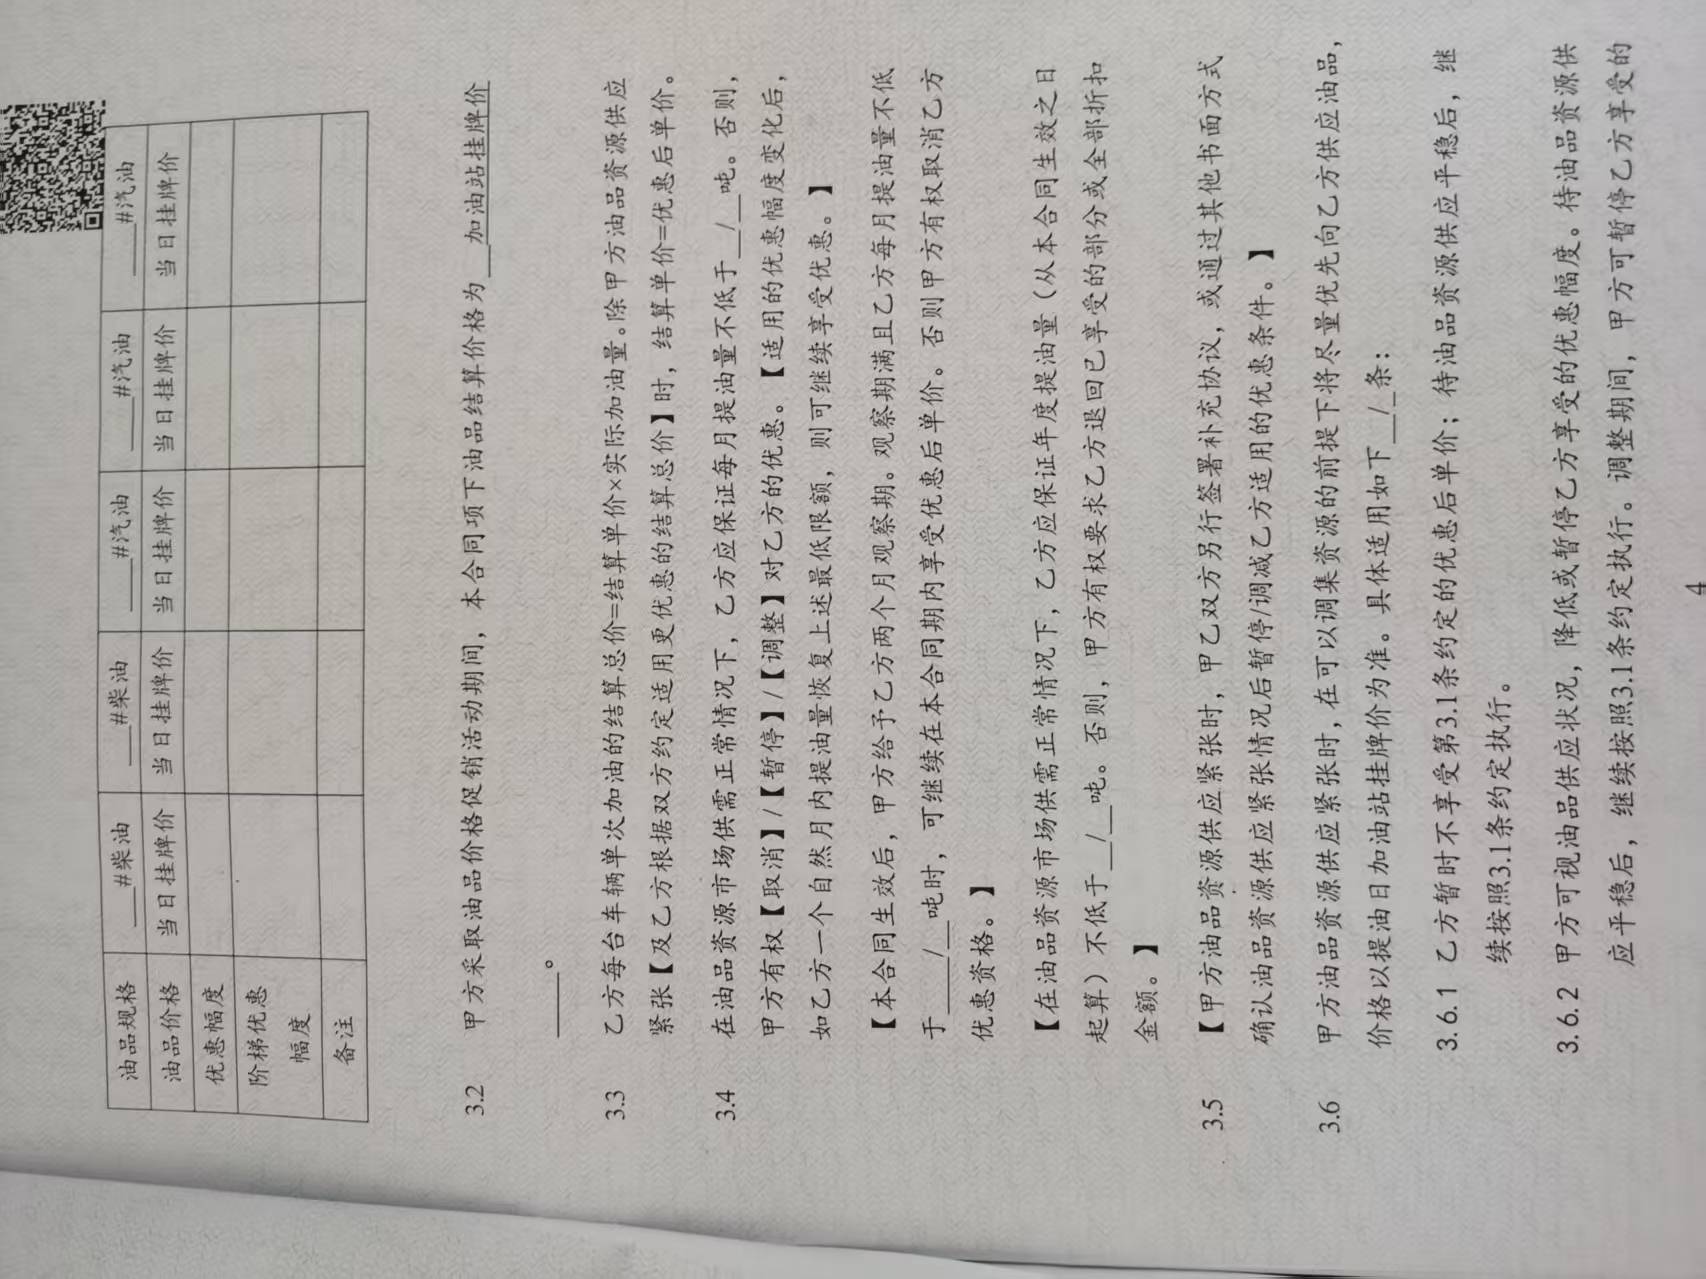 油品规格 ___#柴油 ___#柴油 ___#汽油 ___#汽油 ___#汽油
油品价格 当日挂牌价 当日挂牌价 当日挂牌价 当日挂牌价 当日挂牌价
优惠幅度
阶梯优惠
幅度
备注
3.2 甲方采取油品价格促销活动期间，本合同项下油品结算价格为__加油站挂牌价
____。
3.3 乙方每台车辆单次加油的结算总价=结算单价×实际加油量。除甲方油品资源供应
紧张【及乙方根据双方约定适用更优惠的结算总价】时，结算单价=优惠后单价。
3.4 在油品资源市场供需正常情况下，乙方应保证每月提油量不低于__/__吨。否则，
甲方有权【取消】/【暂停】/【调整】对乙方的优惠。【适用的优惠幅度变化后，
如乙方一个自然月内提油量恢复上述最低限额，则可继续享受优惠。】
【本合同生效后，甲方给予乙方两个月观察期。观察期满且乙方每月提油量不低
于____/__吨时，可继续在本合同期内享受优惠后单价。否则甲方有权取消乙方
优惠资格。】
【在油品资源市场供需正常情况下，乙方应保证年度提油量（从本合同生效之日
起算）不低于__/__吨。否则，甲方有权要求乙方退回已享受的部分或全部折扣
金额。】
3.5 【甲方油品资源供应紧张时，甲乙双方另行签署补充协议，或通过其他书面方式
确认油品资源供应紧张情况后暂停/调减乙方适用的优惠条件。】
3.6 甲方油品资源供应紧张时，在可以调集资源的前提下将尽量优先向乙方供应油品，
价格以提油日加油站挂牌价为准。具体适用如下__/_条：
3.6.1 乙方暂时不享受第3.1条约定的优惠后单价；待油品资源供应平稳后，继
续按照3.1条约定执行。
3.6.2 甲方可视油品供应状况，降低或暂停乙方享受的优惠幅度。待油品资源供
应平稳后，继续按照3.1条约定执行。调整期间，甲方可暂停乙方享受的
4